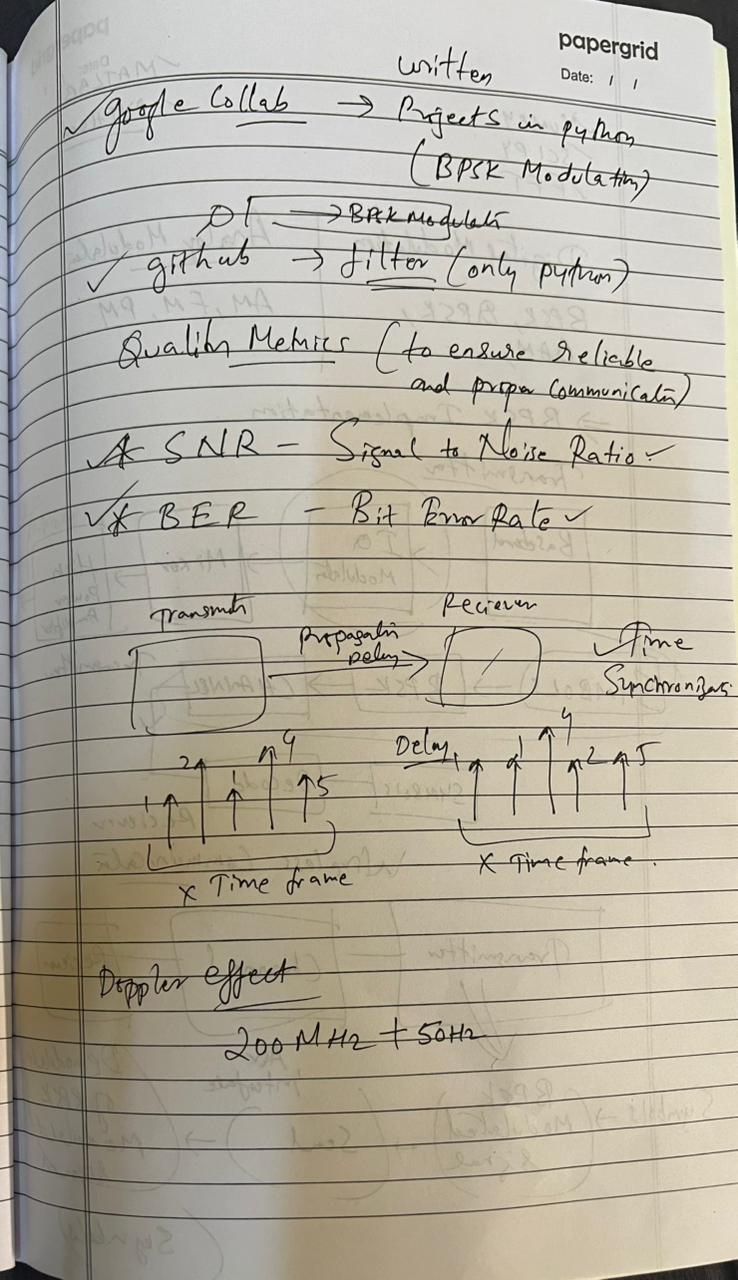 papergrid
Date: / /
written
✓ google Collab → Projects in python
(BPSK Modulation)
→ BPSK Modulati
✓ github → filter (only python)
Quality Metrics (to ensure reliable
and proper communicatn)
* SNR - Signal to Noise Ratio ✓
✓* BER - Bit Error Rate ✓
Transmitr
Propagatn
Delay
Reciever
✓ Time
Synchronizatn
1 2 1 4 5
X Time frame
Delay
1 1 4 2 5
X Time frame.
Doppler effect
200 MHz + 50Hz